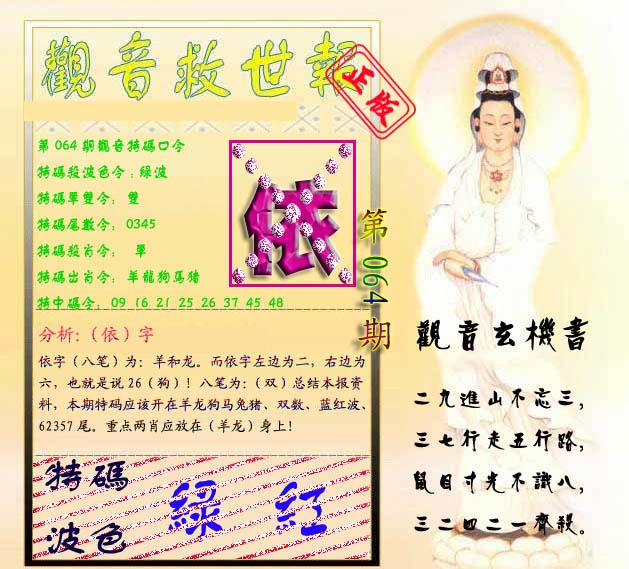 觀音救世報
正版
第 064 期觀音特碼口令
特碼殺波色令：綠波
特碼單雙令： 雙
特碼尾數令： 0345
特碼殺肖令： 單
特碼出肖令： 羊龍狗馬豬
特中碼令： 09 16 21 25 26 37 45 48
依
第 064 期
分析:（依）字
依字（八笔）为：羊和龙。而依字左边为二，右边为
六，也就是说 26（狗）！八笔为：（双）总结本报资
料，本期特码应该开在羊龙狗马兔猪、双数、蓝红波、
62357 尾。重点两肖应放在（羊龙）身上！
特碼
波色
綠 紅
觀音玄機書
二九進山不忘三，
三七行走五行路，
鼠目寸光不識八，
三二四二一齊殺。